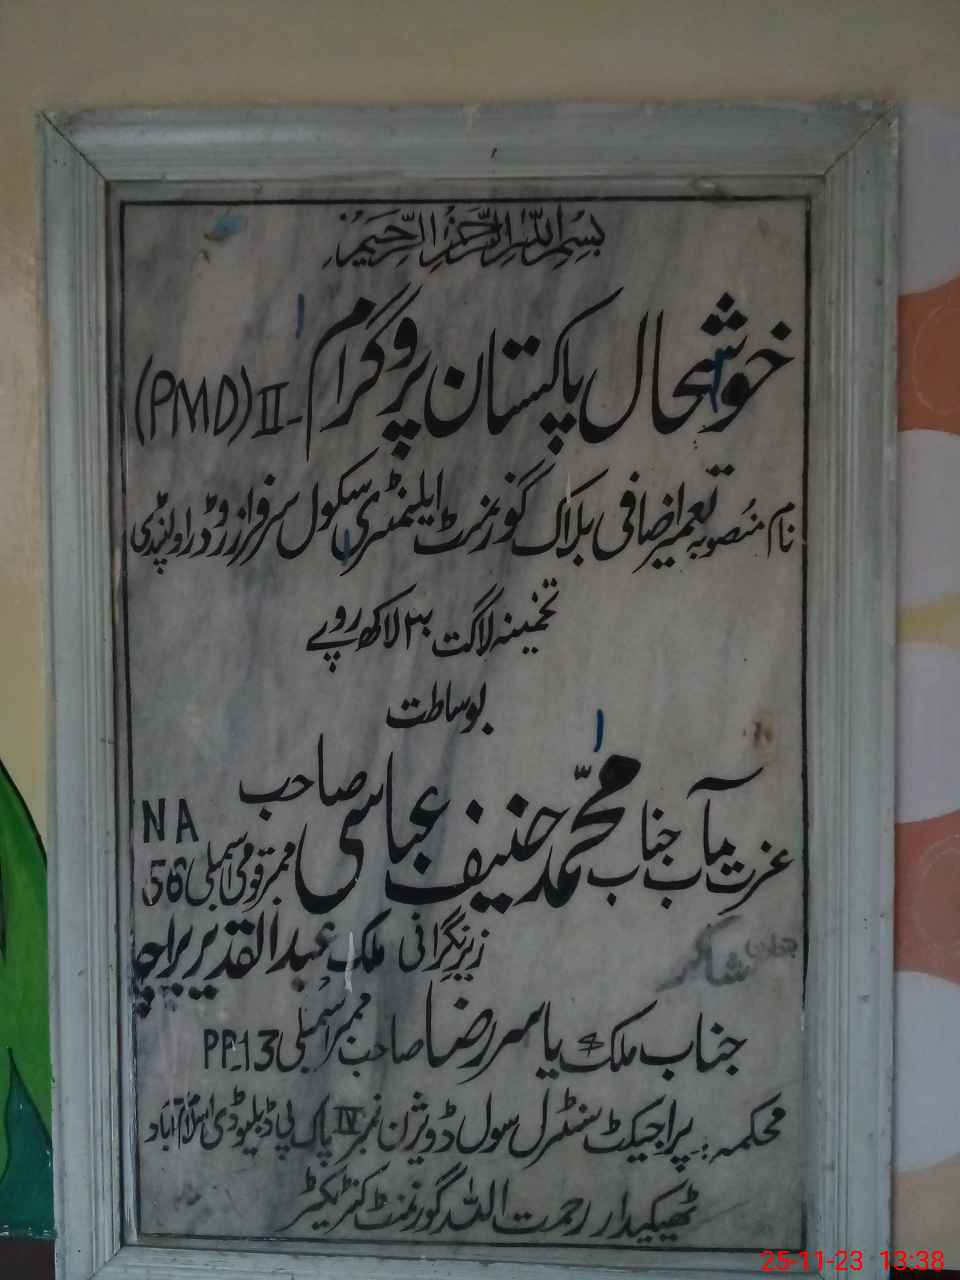 بسم اللہ الرحمن الرحیم
خوشحال پاکستان پروگرام - II (PMD)
نام منصوبہ تعمیر اضافی بلاک گورنمنٹ ایلیمنٹری سکول سرفراز روڈ راولپنڈی
تخمینہ لاگت ۳۰ لاکھ روپے
بوساطت
عزت مآب جناب محمد حنیف عباسی صاحب ممبر قومی اسمبلی NA 56
زیر نگرانی ملک عبدالقدیر پراچہ
شاکر
جناب ملک یاسر رضا صاحب ممبر اسمبلی PP-13
محکمہ: پراجیکٹ سنٹرل سول ڈویژن نمبر IV پاک پی ڈبلیو ڈی اسلام آباد
ٹھیکیدار رحمت اللہ گورنمنٹ کنٹریکٹر
25-11-23 13:38